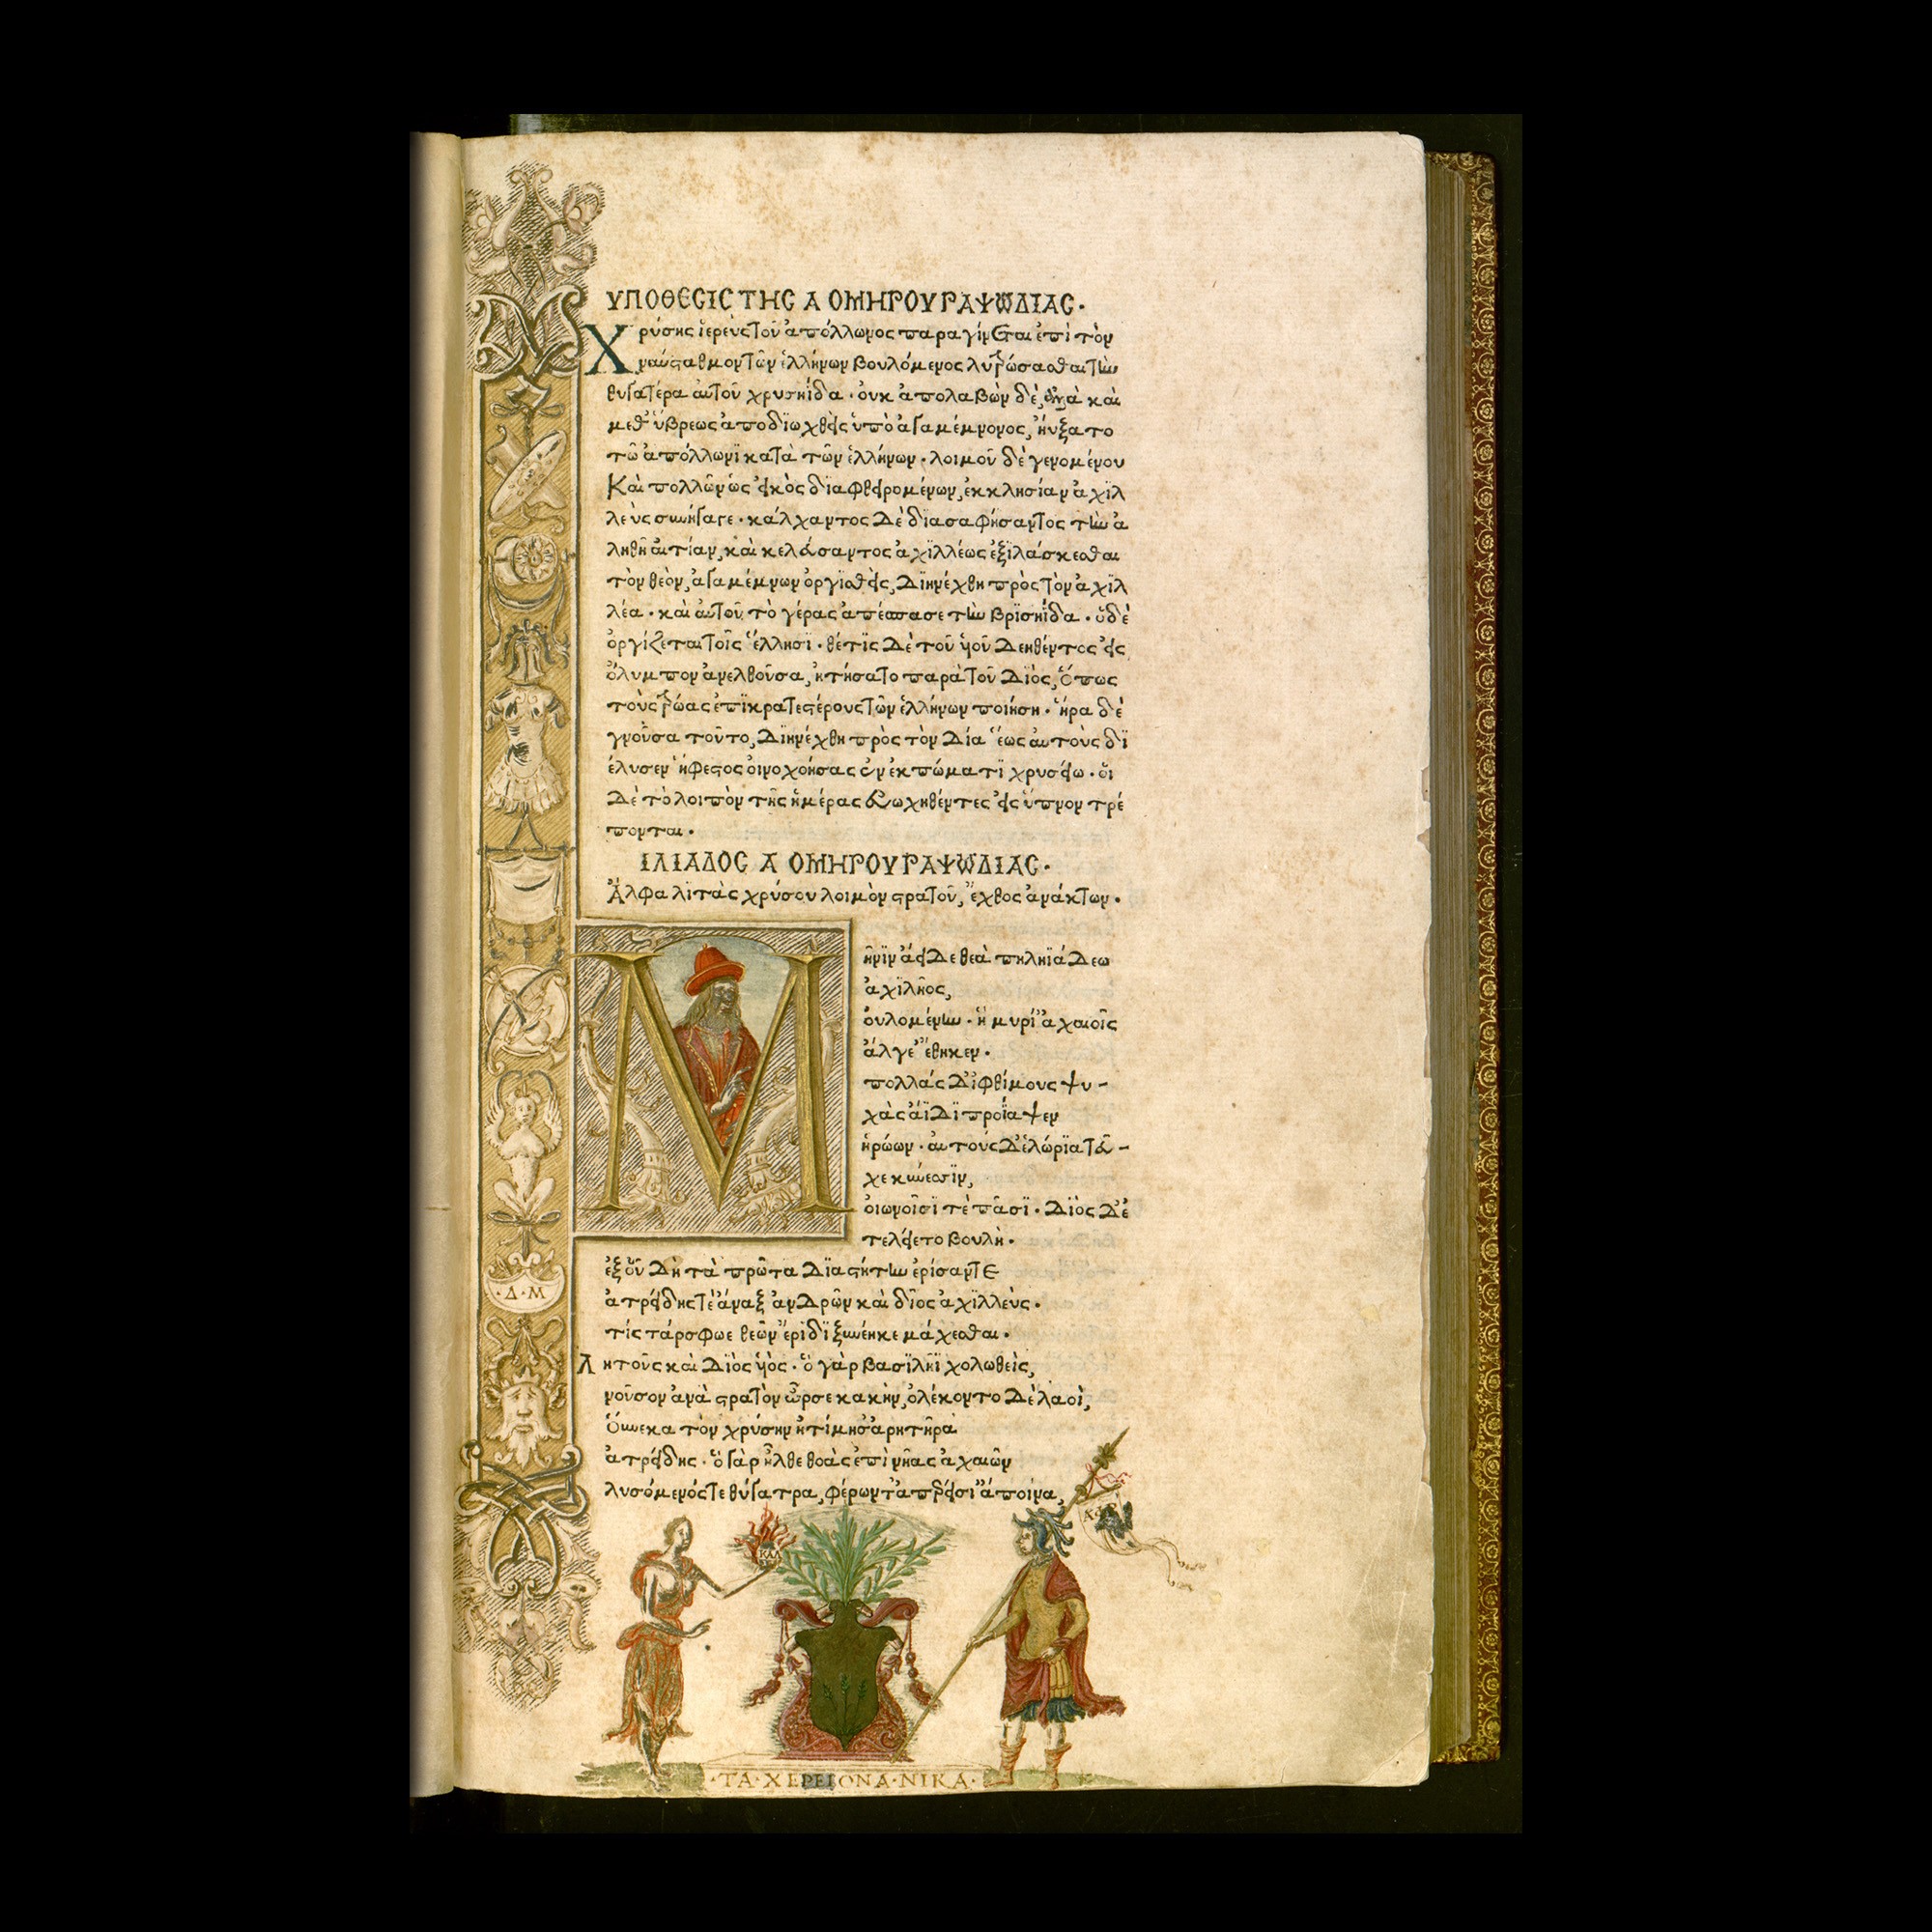 ΥΠΟΘΕCΙC ΤΗC Α ΟΜΗΡΟΥ ΡΑΨΩΔΙΑC·
Χρύσης ἱερεὺς τοῦ ἀπόλλωνος παραγίνεται ἐπὶ τὸν
ναύσταθμον τῶν ἑλλήνων βουλόμενος λυτρώσασθαι τὴν
θυγατέρα αὐτοῦ χρυσηΐδα · οὐκ ἀπολαβὼν δὲ, ἀλλὰ καὶ
μεθ' ὕβρεως ἀποδϊωχθεὶς ὑπὸ ἀγαμέμνονος, ἠύξατο
τῶ ἀπόλλωνϊ κατὰ τῶν ἑλλήνων · λοιμοῦ δὲ γενομένου
Καὶ πολλῶν ὡς εἰκὸς δϊαφθειρομένων, ἐκκλησίαν ἀχϊλ
λεὺς συνήγαγε · κάλχαντος δὲ δϊασαφήσαντος τὴν ἀ
ληθῆ αἰτίαν, καὶ κελεύσαντος ἀχϊλλέως ἐξϊλάσκεσθαι
τὸν θεὸν, ἀγαμέμνων ὀργϊσθεὶς, δϊηνέχθη πρὸς τὸν ἀχϊλ
λέα · καὶ αὐτοῦ τὸ γέρας ἀπέσπασε τὴν βρϊσηΐδα · ὁ δὲ
ὀργίζεται τοῖς ἕλλησϊ · θέτϊς δὲ τοῦ υἱοῦ δεηθέντος εἰς
ὄλυμπον ἀνελθοῦσα, ἠτήσατο παρὰ τοῦ Δϊὸς, ὅπως
τοὺς τρώας ἐπϊκρατεστέρους τῶν ἑλλήνων ποιήση · ἥρα δὲ
γνοῦσα τοῦτο, δϊηνέχθη πρὸς τὸν Δία ἕως αὐτοὺς δϊ
έλυσεν ἥφεστος οἰνοχοήσας ἐν ἐκπώματϊ χρυσείω · οἱ
δὲ τὸ λοιπὸν τῆς ἡμέρας εὐωχηθέντες εἰς ὕπνον τρέ
πονται·
ΙΛΙΑΔΟC Α ΟΜΗΡΟΥ ΡΑΨΩΔΙΑC·
Ἄλφα λϊτὰς χρύσου λοιμὸν στρατοῦ, ἔχθος ἀνάκτων·
Μῆνϊν ἄειδε θεὰ πηληϊάδεω
ἀχϊλῆος,
οὐλομένην · ἣ μυρί' ἀχαιοῖς
ἄλγε' ἔθηκεν·
πολλὰς δ' ἰφθίμους ψυ-
χὰς ἄϊδϊ προΐαψεν
ἡρώων · αὐτοὺς δ' ἑλώρϊα τεῦ-
χε κύνεσσϊν,
οἰωνοῖσϊ τὲ πᾶσϊ · Δϊὸς δ' ἐ
τελείετο βουλή·
ἐξ οὗ δὴ τὰ πρῶτα δϊαστήτην ἐρίσαντε
ἀτρείδης τὲ ἄναξ ἀνδρῶν καὶ δῖος ἀχϊλλεύς·
τίς τάρ σφωε θεῶν ἔρϊδϊ ξυνέηκε μάχεσθαι·
Λητοῦς καὶ Δϊὸς υἱός · ὃ γὰρ βασϊλῆϊ χολωθεὶς,
νοῦσον ἀνὰ στρατὸν ὦρσε κακὴν, ὀλέκοντο δὲ λαοὶ,
Οὕνεκα τὸν χρύσην ἠτίμησ' ἀρητῆρα
ἀτρείδης · ὃ γὰρ ἦλθε θοὰς ἐπὶ νῆας ἀχαιῶν
λυσόμενός τε θύγατρα, φέρων τ' ἀπερείσι' ἄποινα,
·Δ·Μ
ΚΑΛ
·ΤΑ·ΧΕΡΕΙΟΝΑ·ΝΙΚΑ·